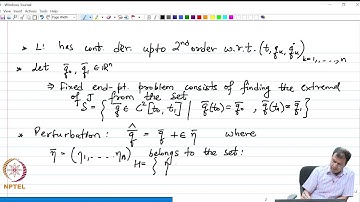 * L: has cont. der. upto 2nd order w.r.t. (t, q_k, q̇_k) k=1,.....,n
* Let q̄_0, q̄_1 ∈ ℝⁿ
⇒ Fixed end-pt. problem consists of finding the extremal
of J from the set
S = { q̄ ∈ C²[t_0, t_1] | q̄(t_0) = q̄_0, q̄(t_1) = q̄_1 }
* Perturbation: q̂ = q̄ + ε η̄ where
η̄ = (η_1, ..... η_n) belongs to the set:
H = {
NPTEL